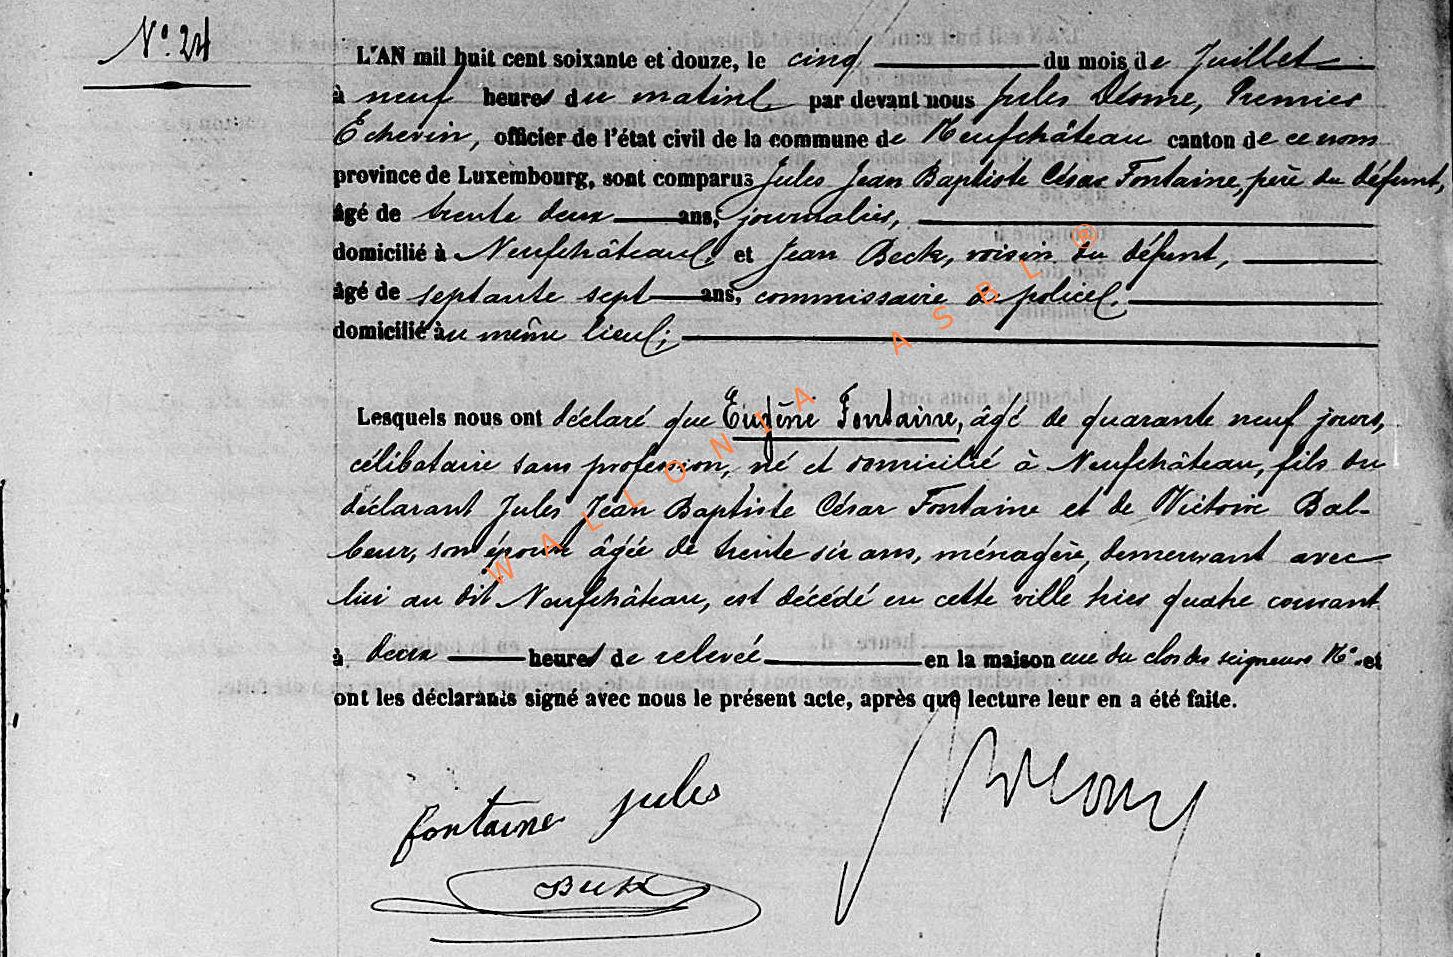 N° 24
L'AN mil huit cent soixante et douze, le cinq du mois de Juillet
à neuf heures du matin par devant nous Jules Désome, Premier
Echevin, officier de l'état civil de la commune de Neufchâteau canton de ce nom
province de Luxembourg, sont comparus Jules Jean Baptiste César Fontaine, père du défunt,
âgé de trente deux ans, journalier,
domicilié à Neufchâteau, et Jean Beck, voisin du défunt,
âgé de septante sept ans, commissaire de police,
domicilié au même lieu;
Lesquels nous ont déclaré que Eugène Fontaine, âgé de quarante neuf jours,
célibataire sans profession, né et domicilié à Neufchâteau, fils du
déclarant Jules Jean Baptiste César Fontaine et de Victoire Bal-
beur, son épouse âgée de trente six ans, ménagère, demeurant avec
lui au dit Neufchâteau, est décédé en cette ville hier quatre courant
à deux heures de relevée en la maison rue du clos des seigneurs N° et
ont les déclarants signé avec nous le présent acte, après que lecture leur en a été faite.
fontaine jules
Beck
WALLONIA ASBL ®